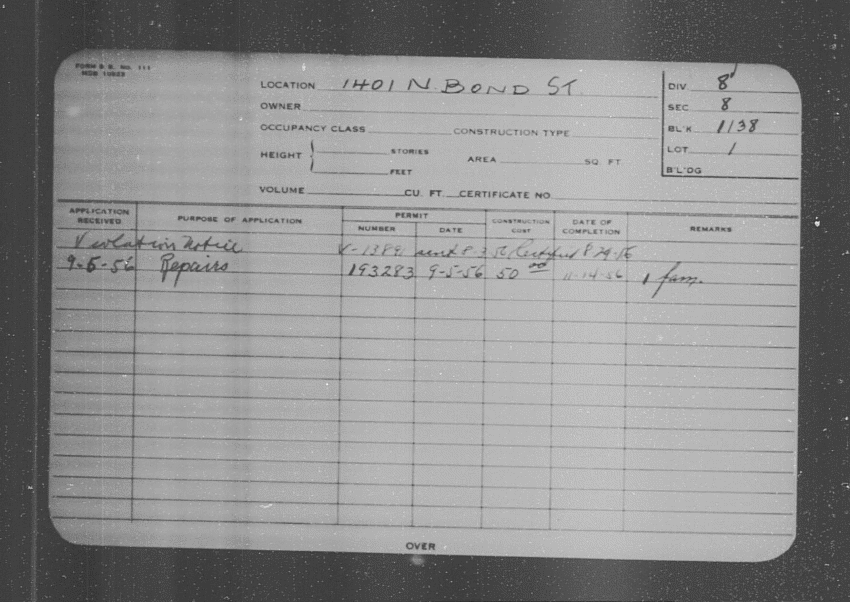 FORM B. B. No. 111
LOCATION 1401 N. BOND ST.
DIV. 8
OWNER
SEC 8
OCCUPANCY CLASS CONSTRUCTION TYPE
BL'K 1138
HEIGHT { STORIES AREA SQ. FT
LOT 1
FEET
B'L'DG
VOLUME CU. FT. CERTIFICATE NO
APPLICATION RECEIVED PURPOSE OF APPLICATION PERMIT NUMBER DATE CONSTRUCTION COST DATE OF COMPLETION REMARKS
Violation Notice V-13891 sent 8-3-56 Rectified 8-29-56
9-5-56 Repairs 193283 9-5-56 50 00 11-14-56 1 fam.
OVER